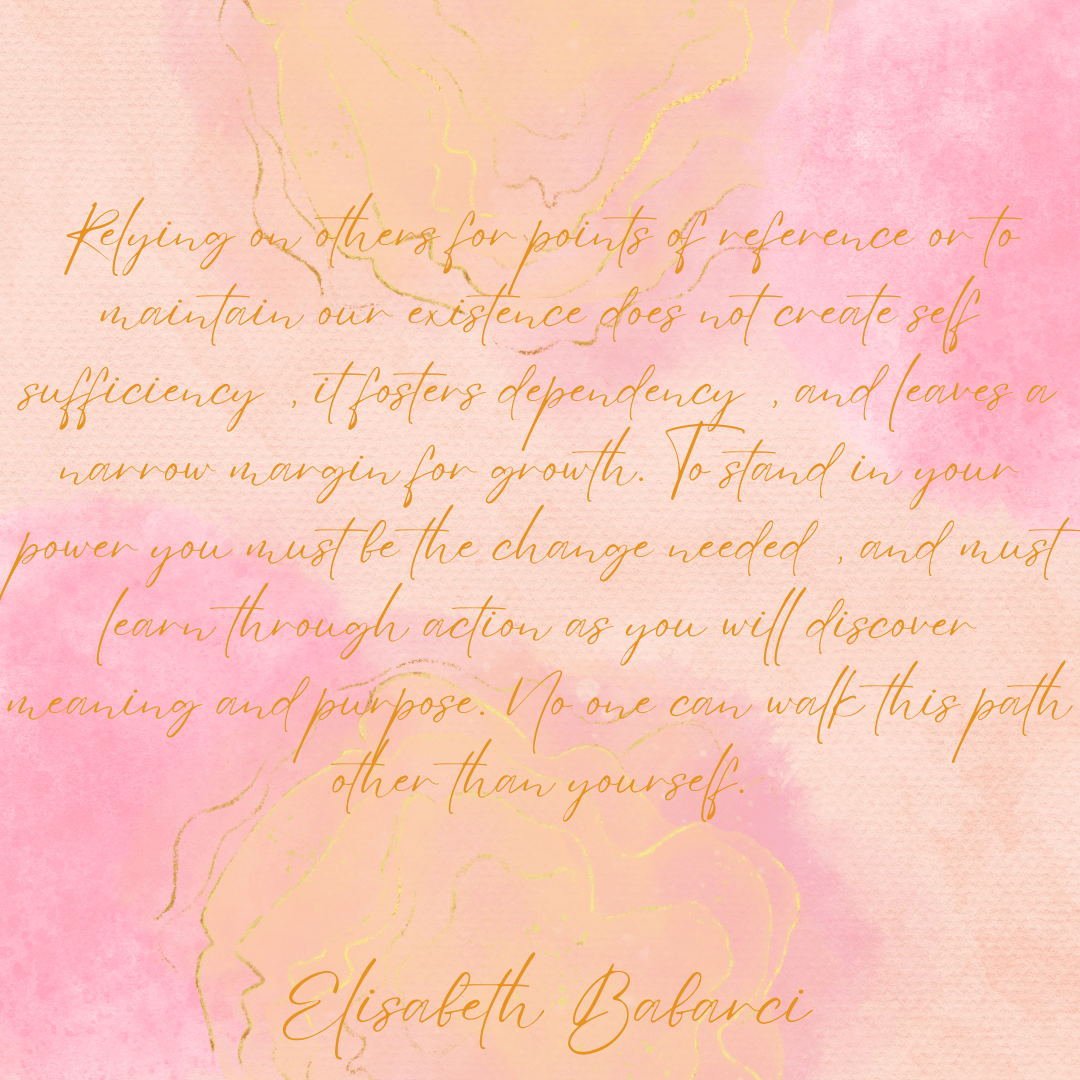 Relying on others for points of reference or to
maintain our existence does not create self
sufficiency , it fosters dependency , and leaves a
narrow margin for growth. To stand in your
power you must be the change needed , and must
learn through action as you will discover
meaning and purpose. No one can walk this path
other than yourself.
Elisabeth Babarci